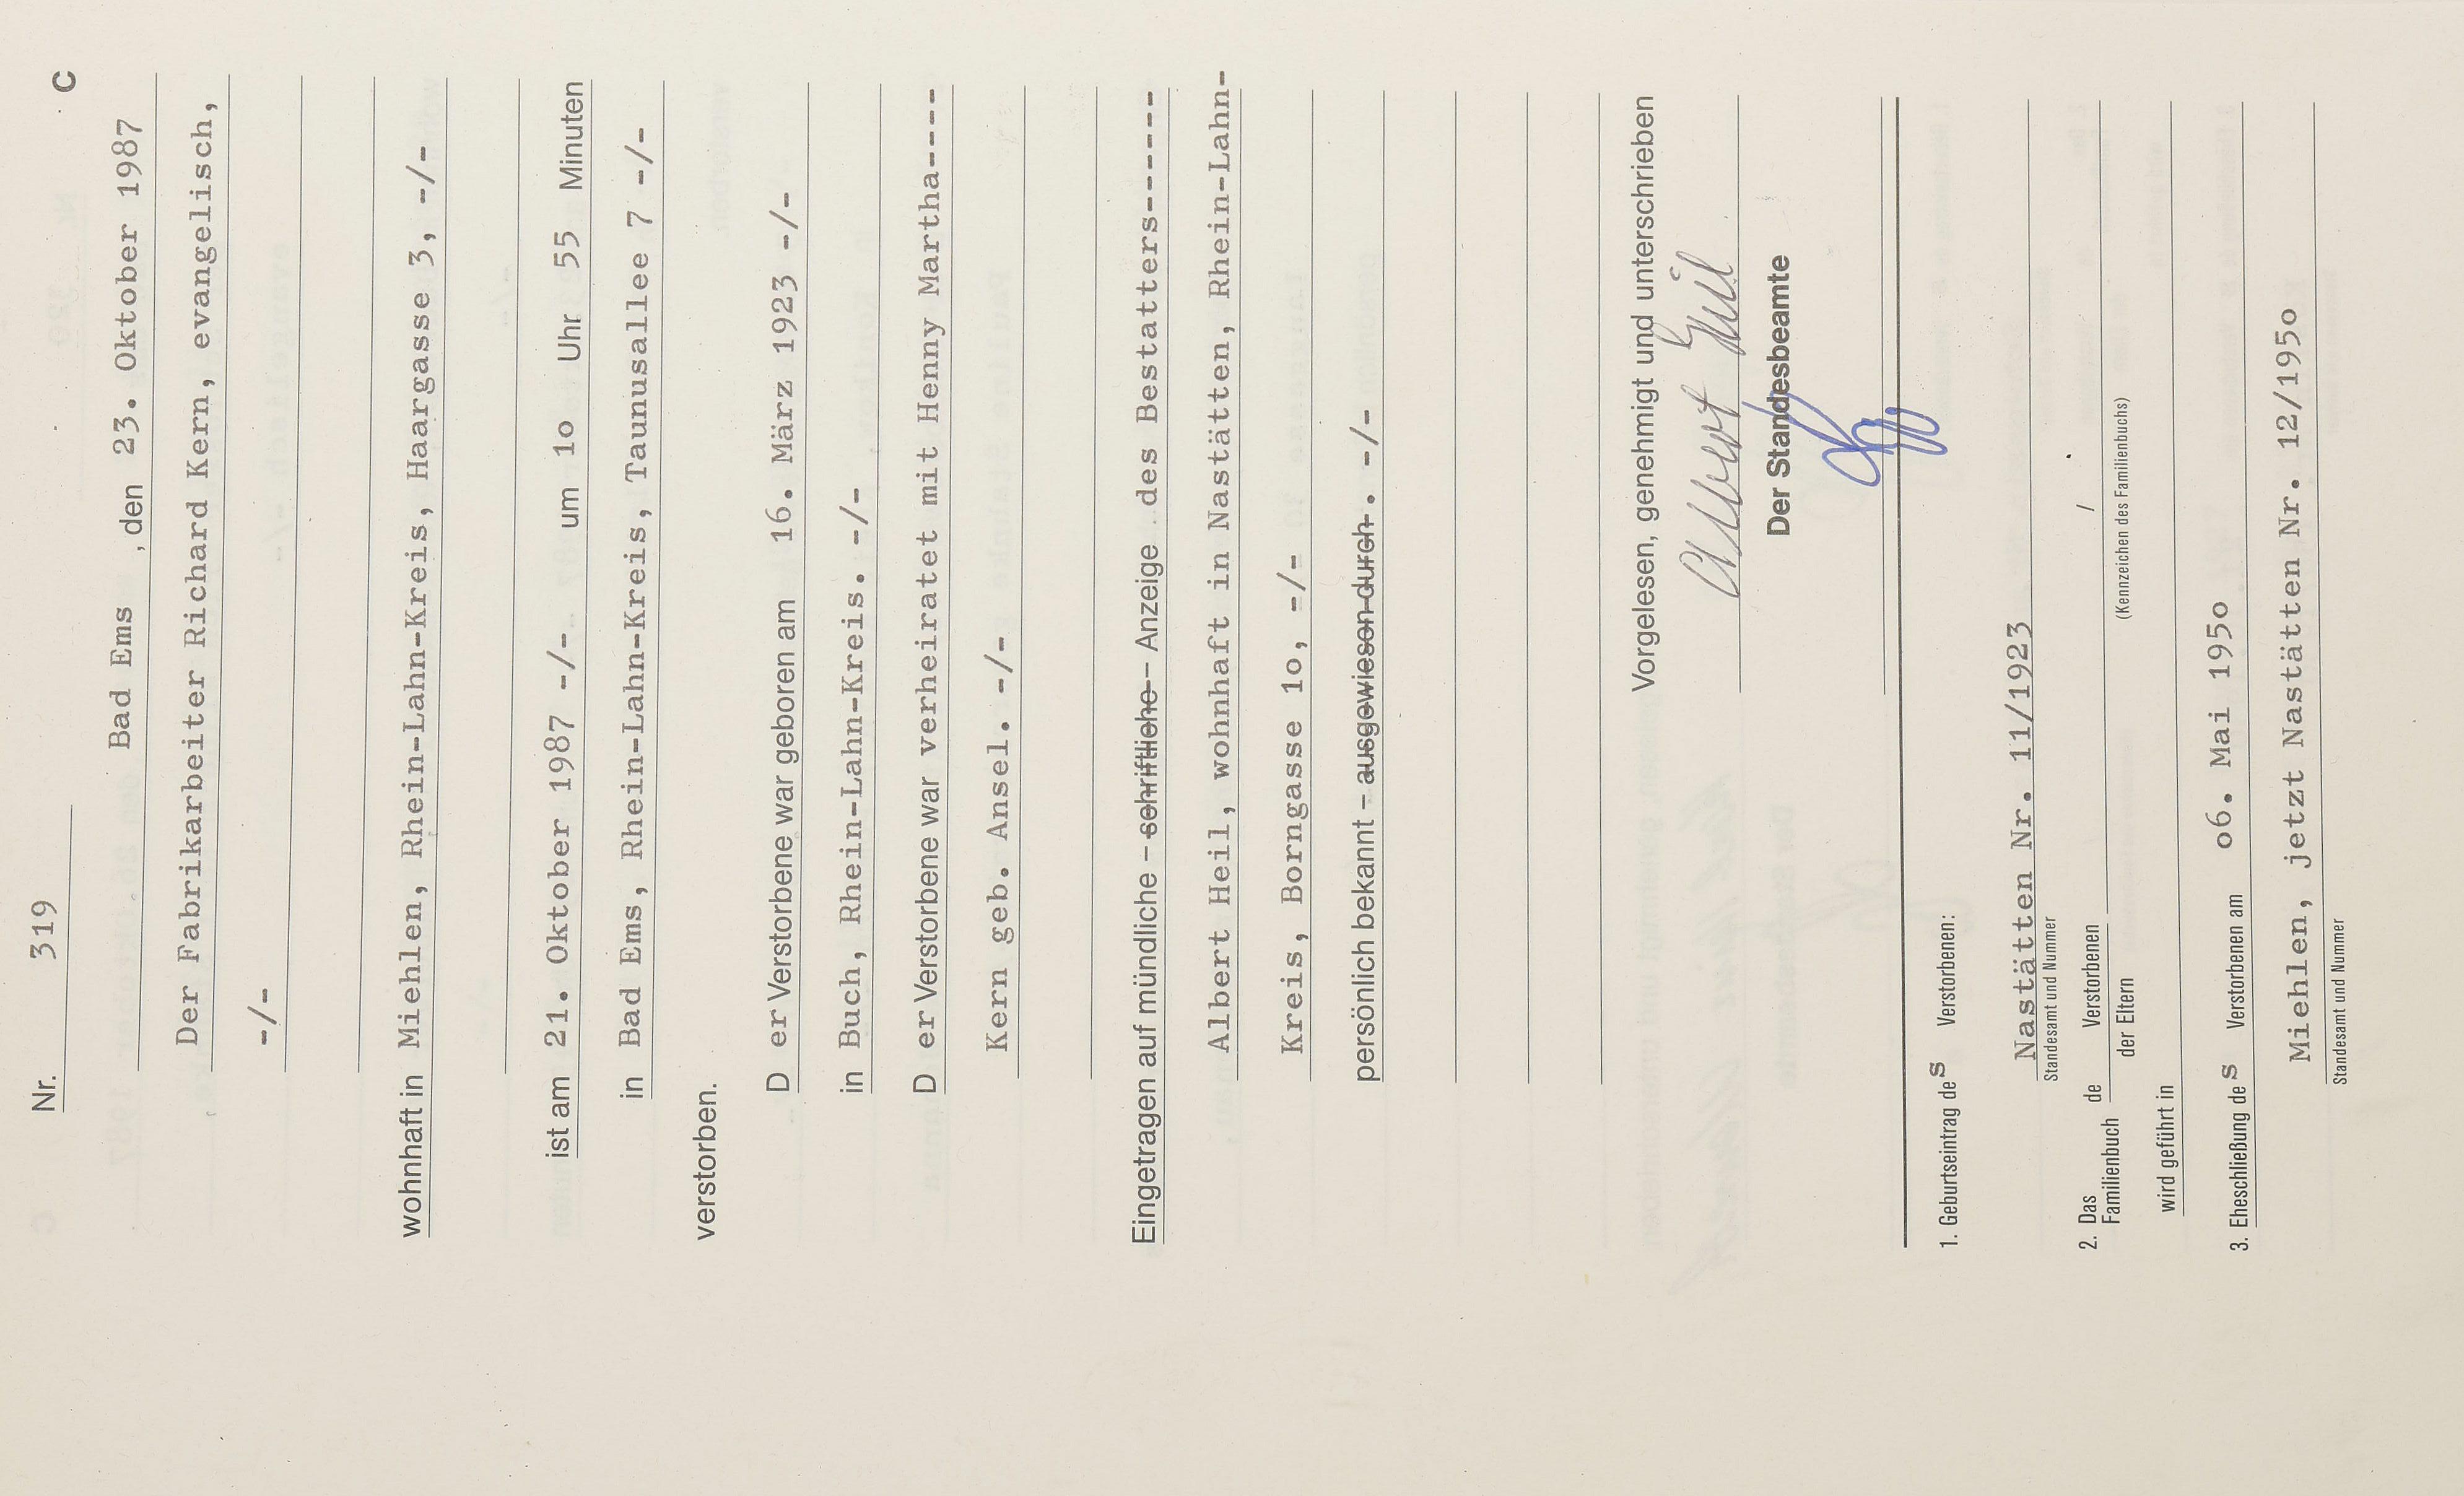 C
Nr. 319
Bad Ems , den 23. Oktober 1987
Der Fabrikarbeiter Richard Kern, evangelisch,
-/-
wohnhaft in Miehlen, Rhein-Lahn-Kreis, Haargasse 3, -/-
ist am 21. Oktober 1987 -/- um 1o Uhr 55 Minuten
in Bad Ems, Rhein-Lahn-Kreis, Taunusallee 7 -/-
verstorben.
D er Verstorbene war geboren am 16. März 1923 -/-
in Buch, Rhein-Lahn-Kreis. -/-
D er Verstorbene war verheiratet mit Henny Martha-----
Kern geb. Ansel. -/-
Eingetragen auf mündliche – schriftliche – Anzeige des Bestatters-------
Albert Heil, wohnhaft in Nastätten, Rhein-Lahn-
Kreis, Borngasse 1o, -/-
persönlich bekannt – ausgewiesen durch . -/-
Vorgelesen, genehmigt und unterschrieben
Albert Heil
Der Standesbeamte
1. Geburtseintrag des Verstorbenen:
Nastätten Nr. 11/1923
Standesamt und Nummer
2. Das Familienbuch de Verstorbenen / der Eltern
(Kennzeichen des Familienbuchs)
wird geführt in
3. Eheschließung des Verstorbenen am o6. Mai 195o
Miehlen, jetzt Nastätten Nr. 12/195o
Standesamt und Nummer